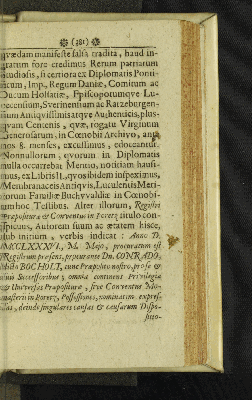 (381)
qvædam manifeste falsa tradita, haud in-
gratum fore credimus Rerum patriarum
Studiosis, si certiora ex Diplomatis Ponti-
ficum, Imp., Regum Daniæ, Comitum ac
Ducum Holsatiæ, Episcoporumqve Lu-
becensium, Sverinensium ac Ratzeburgen-
sium Antiqvissimis atqve Authenticis, plus-
qvam Centenis, qvæ, rogatu Virginum
Generosarum, in Cœnobii Archivo, ante
nos 8. menses, excussimus, edoceantur.
Nonnullorum, qvorum in Diplomatis
nulla occurrebat Mentio, notitiam hausi-
mus, ex Libris II, qvos ibidem inspeximus,
Membranaceis Antiqvis, Luculentis Meri-
torum Familiæ Buchvvaldiæ in Cœnobi-
um hoc Testibus. Alter illorum, Registri
Præpositura & Conventus in Poretz titulo con-
spicuus, Autorem suum ac ætatem hisce,
sub initium, verbis indicat: Anno D.
MCCLXXXVI, M. Majo, procuratum est
Registrum præsens, procurante Dn. CONRADO,
dicto BOCHOLT, tunc Præposito nostro, pro se &
suis Successoribus; omnia continens Privilegia
& Universas Præpositura, sive Conventus Mo-
nasterii in Poretz, Possessiones, nominatim expres-
sas, deinde singulares causas & causarum Dispo-
sitio-